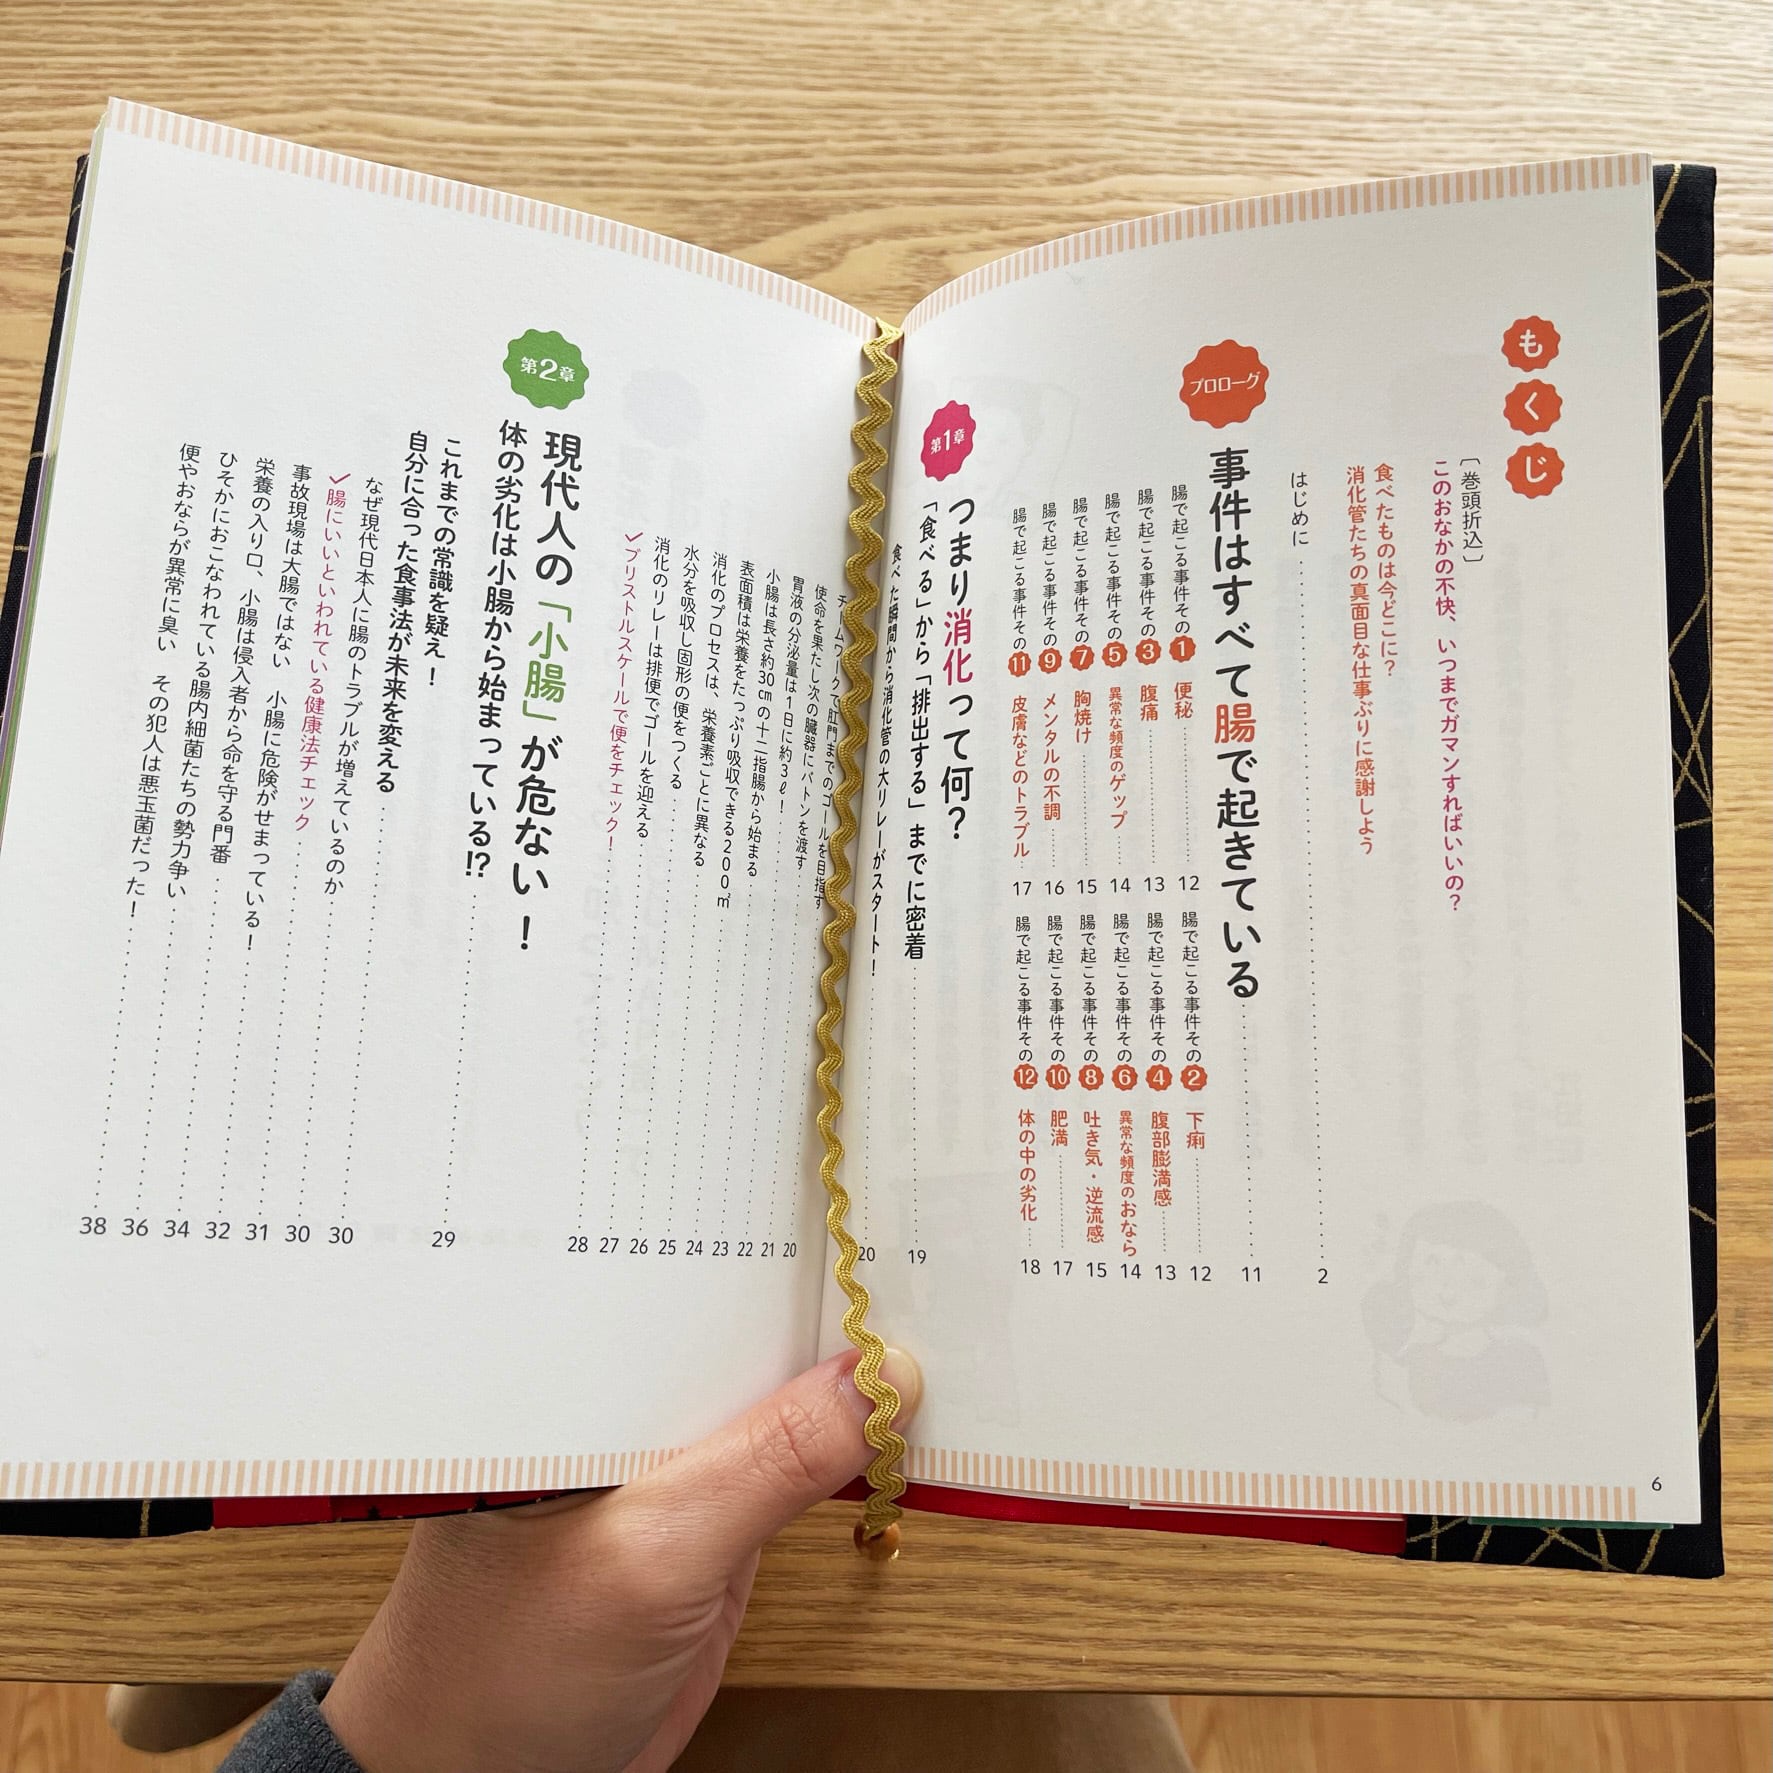 もくじ
〔巻頭折込〕
このおなかの不快、いつまでガマンすればいいの？
食べたものは今どこに？
消化管たちの真面目な仕事ぶりに感謝しよう
はじめに 2
プロローグ
事件はすべて腸で起きている 11
腸で起こる事件その1 便秘 12
腸で起こる事件その2 下痢 12
腸で起こる事件その3 腹痛 13
腸で起こる事件その4 腹部膨満感 13
腸で起こる事件その5 異常な頻度のゲップ 14
腸で起こる事件その6 異常な頻度のおなら 14
腸で起こる事件その7 胸焼け 15
腸で起こる事件その8 吐き気・逆流感 15
腸で起こる事件その9 メンタルの不調 16
腸で起こる事件その10 肥満 17
腸で起こる事件その11 皮膚などのトラブル 17
腸で起こる事件その12 体の中の劣化 18
第1章
つまり消化って何？
「食べる」から「排出する」までに密着 19
食べた瞬間から消化管の大リレーがスタート！ 20
6
チームワークで肛門までのゴールを目指す
使命を果たし次の臓器にバトンを渡す 20
胃液の分泌量は1日に約3ℓ！ 21
小腸は長さ約30㎝の十二指腸から始まる 22
表面積は栄養をたっぷり吸収できる200㎡ 23
消化のプロセスは、栄養素ごとに異なる 24
水分を吸収し固形の便をつくる 25
消化のリレーは排便でゴールを迎える 26
✓ブリストルスケールで便をチェック！ 27
28
第2章
現代人の「小腸」が危ない！
体の劣化は小腸から始まっている!? 29
これまでの常識を疑え！
自分に合った食事法が未来を変える 30
なぜ現代日本人に腸のトラブルが増えているのか 30
✓腸にいいといわれている健康法チェック 31
事故現場は大腸ではない 小腸に危険がせまっている！ 32
栄養の入り口、小腸は侵入者から命を守る門番 34
ひそかにおこなわれている腸内細菌たちの勢力争い 36
便やおならが異常に臭い その犯人は悪玉菌だった！ 38